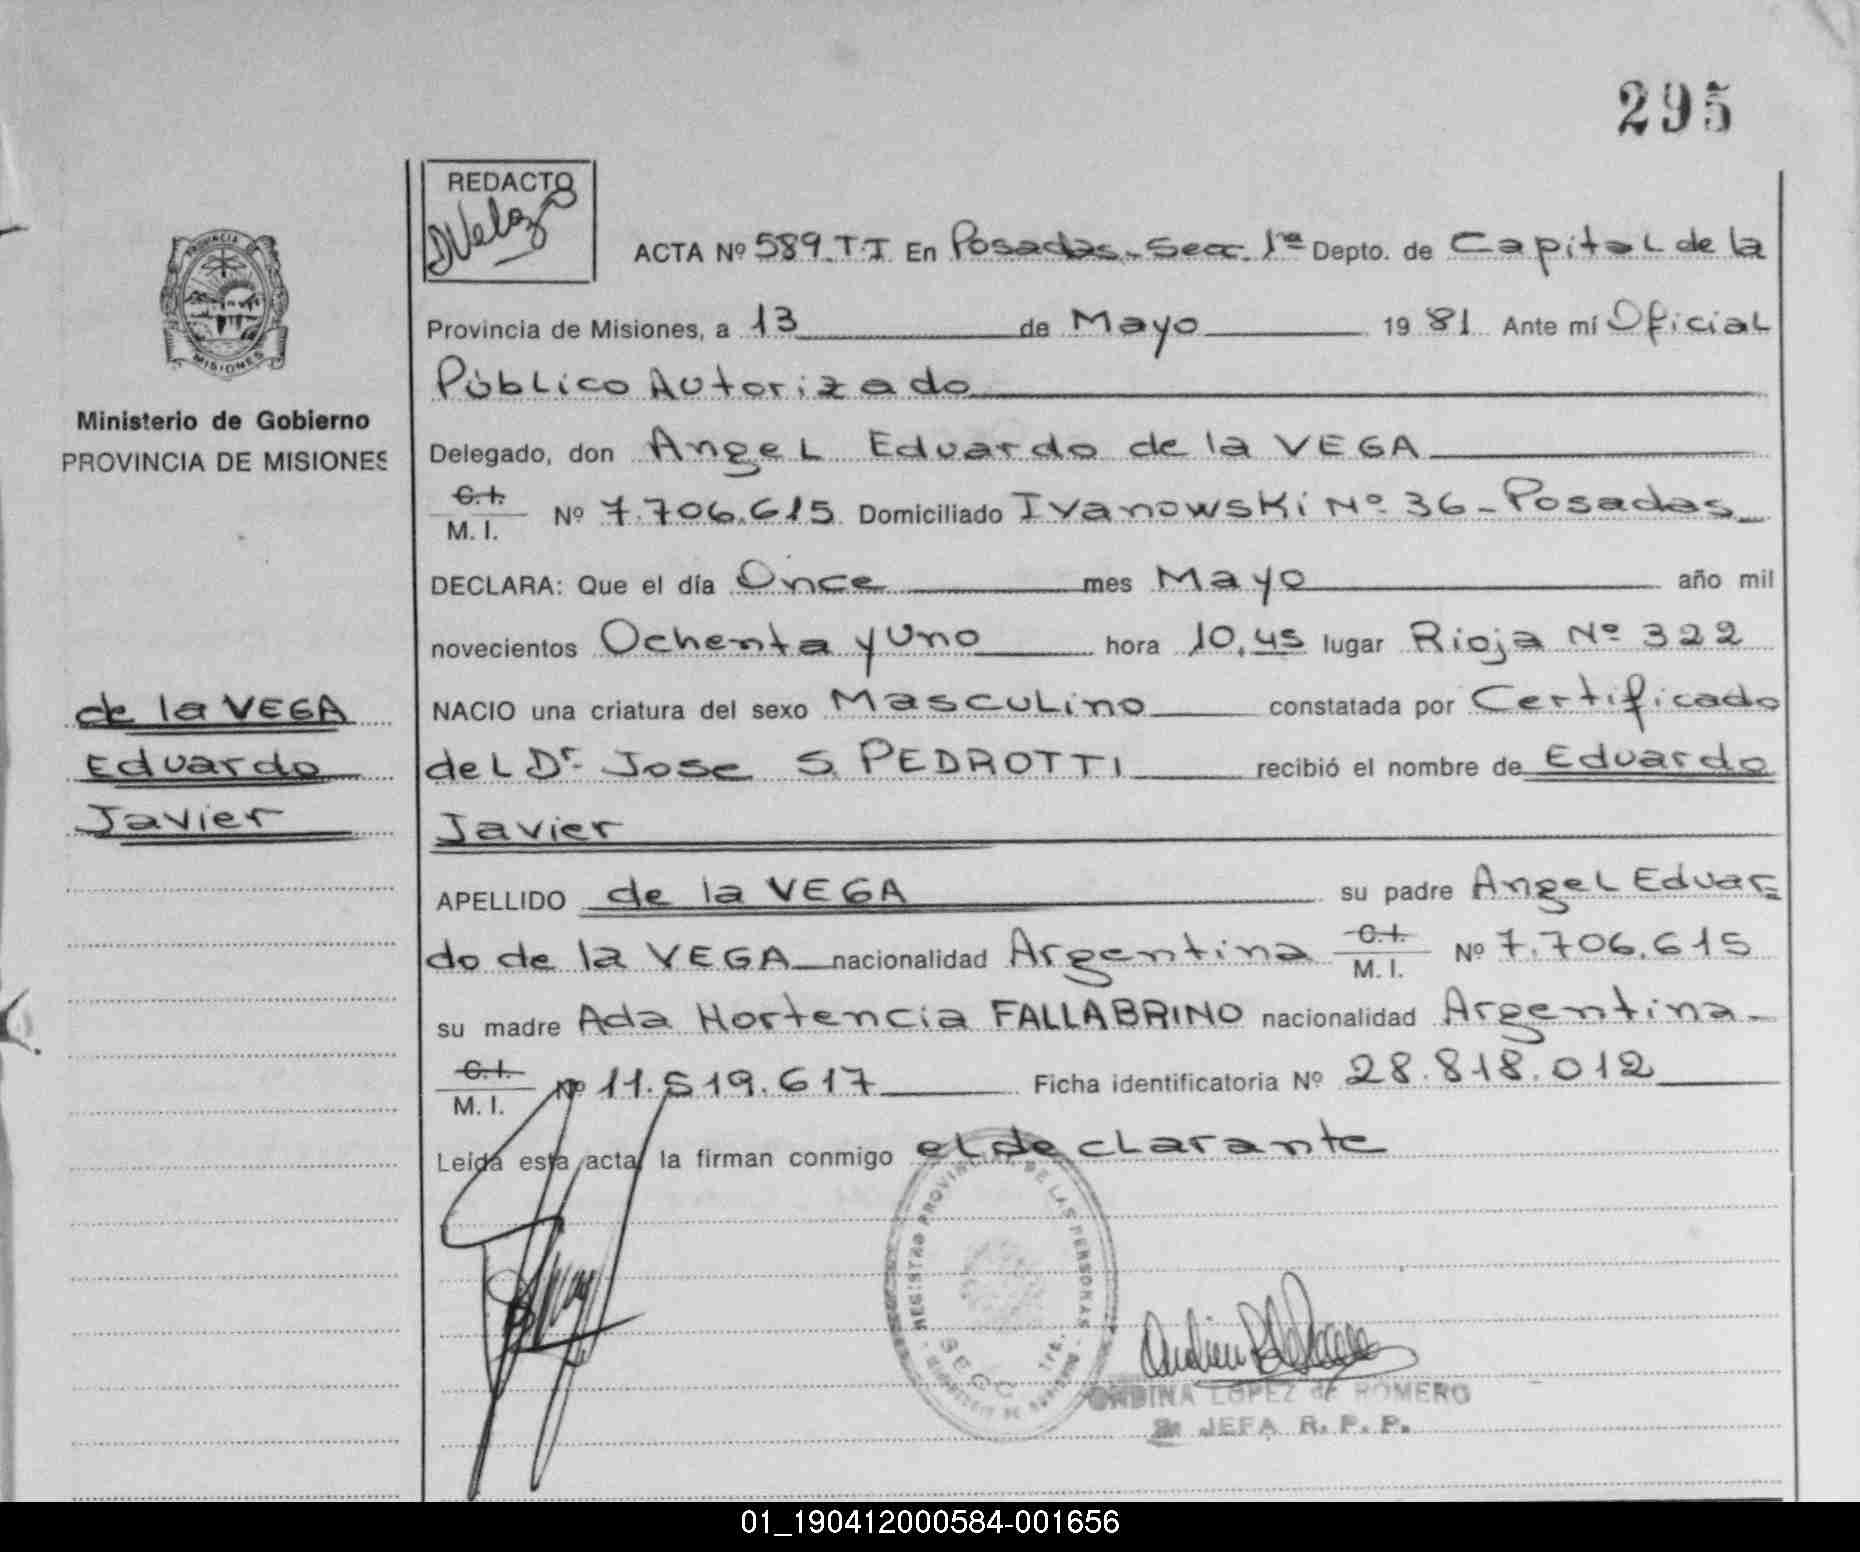 295
REDACTO
ACTA Nº 589.T.I. En Posadas. Secc. 1ª Depto. de Capital de la
PROVINCIA DE
MISIONES
Provincia de Misiones, a 13 de Mayo 1981 Ante mí Oficial
Público Autorizado
Ministerio de Gobierno
PROVINCIA DE MISIONES
Delegado, don Angel Eduardo de la VEGA
C.I.
M. I. Nº 7.706.615 Domiciliado Ivanowski Nº 36 - Posadas
DECLARA: Que el día Once mes Mayo año mil
novecientos Ochenta y Uno hora 10,45 lugar Rioja Nº 322
de la VEGA
Eduardo
Javier
NACIO una criatura del sexo Masculino constatada por Certificado
del Dr. Jose S. PEDROTTI recibió el nombre de Eduardo
Javier
APELLIDO de la VEGA su padre Angel Eduar-
do de la VEGA nacionalidad Argentina C.I. M. I. Nº 7.706.615
su madre Ada Hortencia FALLABRINO nacionalidad Argentina-
C.I.
M. I. Nº 11.519.617 Ficha identificatoria Nº 28.818.012
Leida esta acta, la firman conmigo el declarante
REGISTRO PROVINCIAL DE LAS PERSONAS
SECC 1ra.
ONDINA LOPEZ de ROMERO
JEFA R. P. P.
01_190412000584-001656